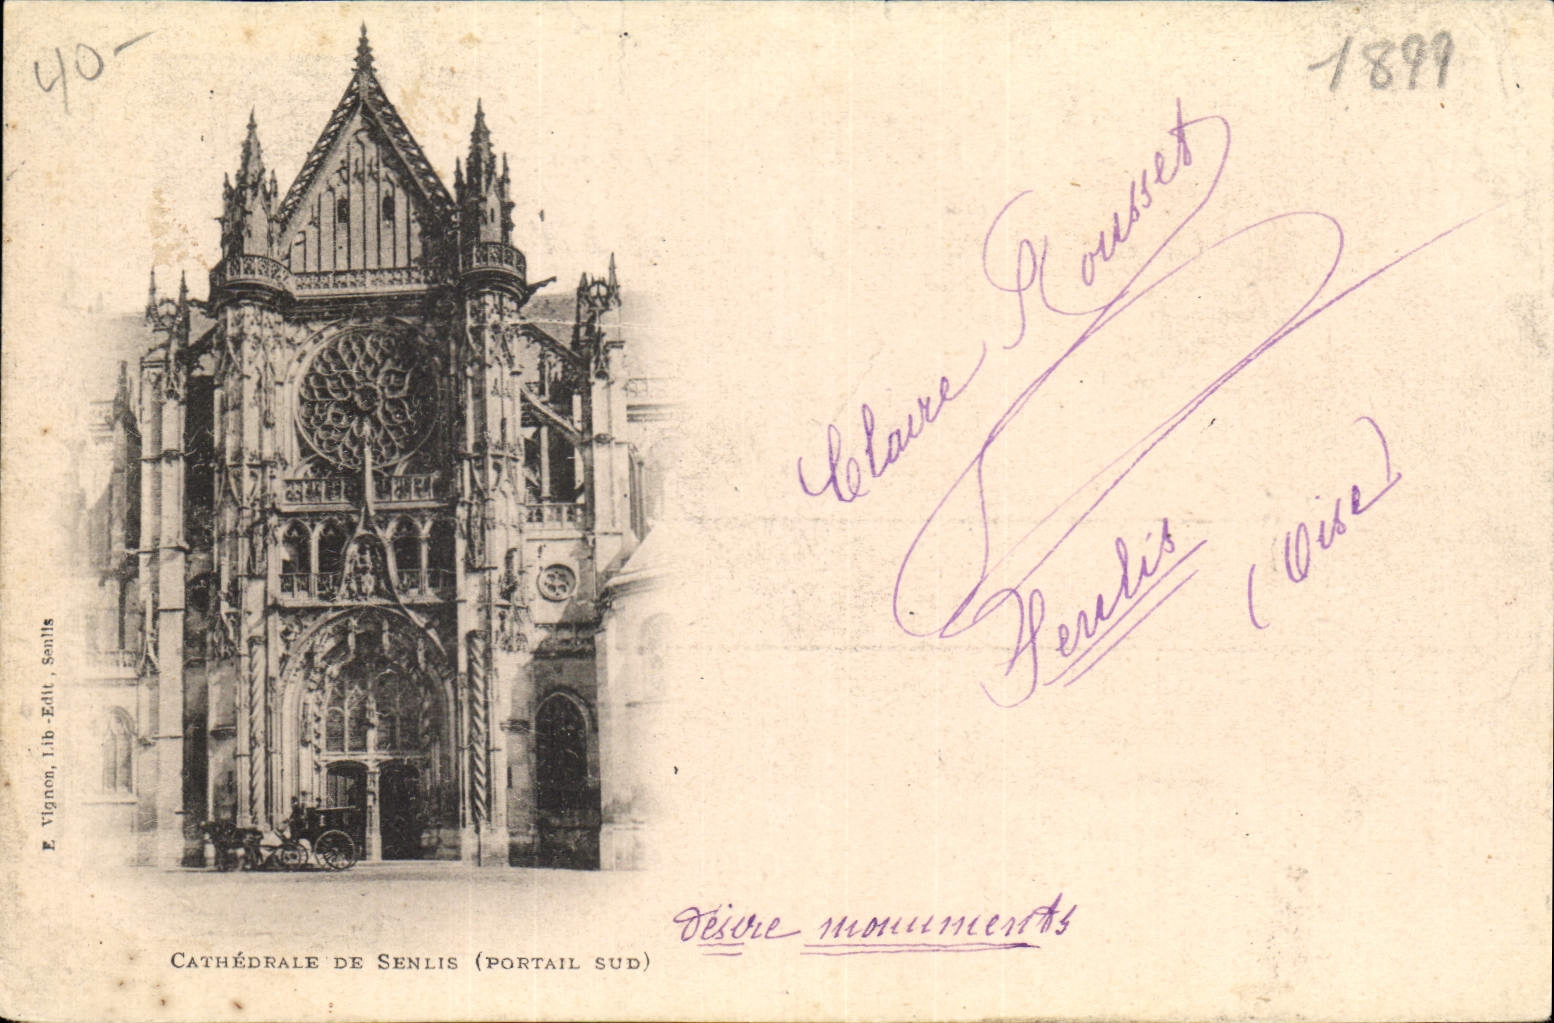 40-
1899
Claire Rousset
Senlis
(Oise)
E. Vignon, Lib.-Edit., Senlis
désire monuments
CATHÉDRALE DE SENLIS (PORTAIL SUD)